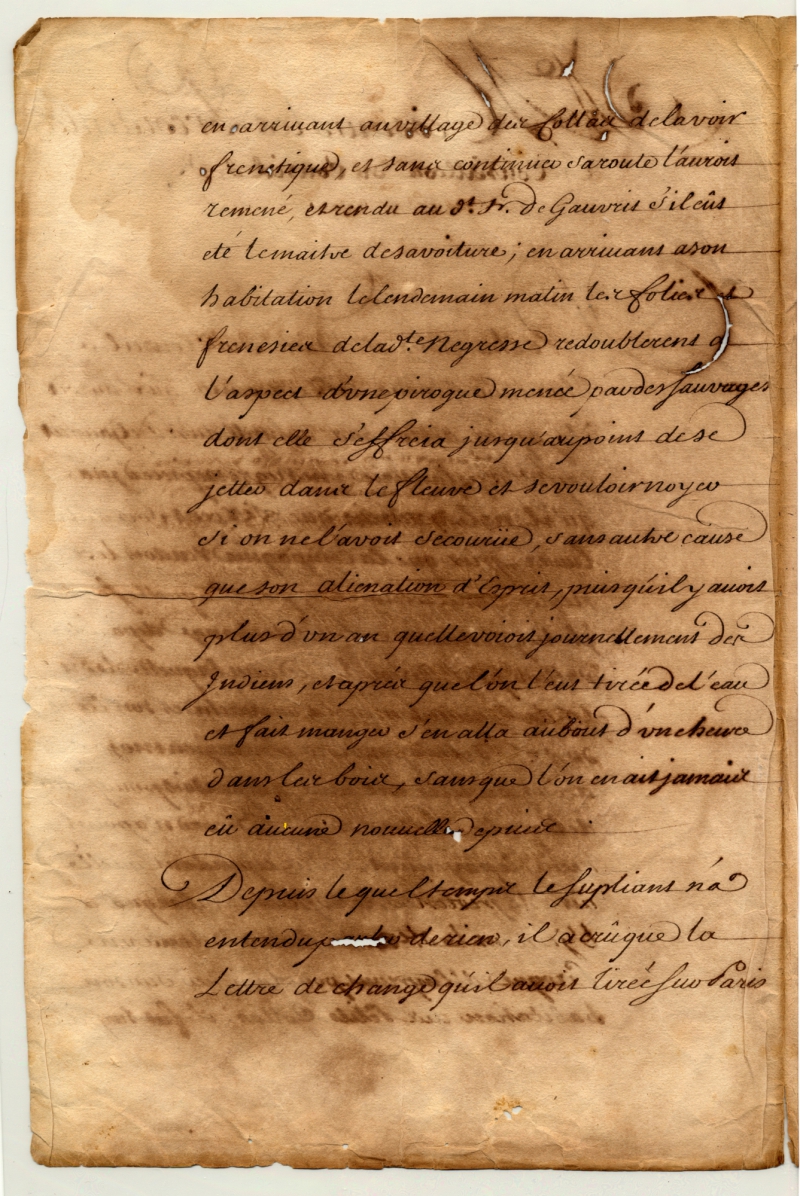 en arrivant au village des Collas de la voir
frenetique, et sans continuer sa route l'auroit
remené, et rendu au d.t Sr. De Gauvrit s'il eût
eté le maitre de sa voiture; en arrivant a son
habitation le lendemain matin les folies et
frenesies de lad.te Negresse redoublerent a
l'aspect d'vne pirogue menée par des sauvages
dont elle s'effreia jusqu'au point de se
jetter dans le fleuve et se vouloir noyer
si on ne l'avoit secouriie, sans autre cause
que son alienation d'Esprit, puisqu'il y avoit
plus d'vn an quelle voioit journellement des
Indiens, et aprés que l'on l'eut tirée de l'eau
et fait manger s'en alla au bout d'vn heure
dans les bois, sans que l'on en ait jamais
eû aucune nouvelle depuis.
Depuis lequel temps le supliant n'a
entendu parler de rien, il a crû que la
Lettre de change qu'il avoit tirée sur Paris